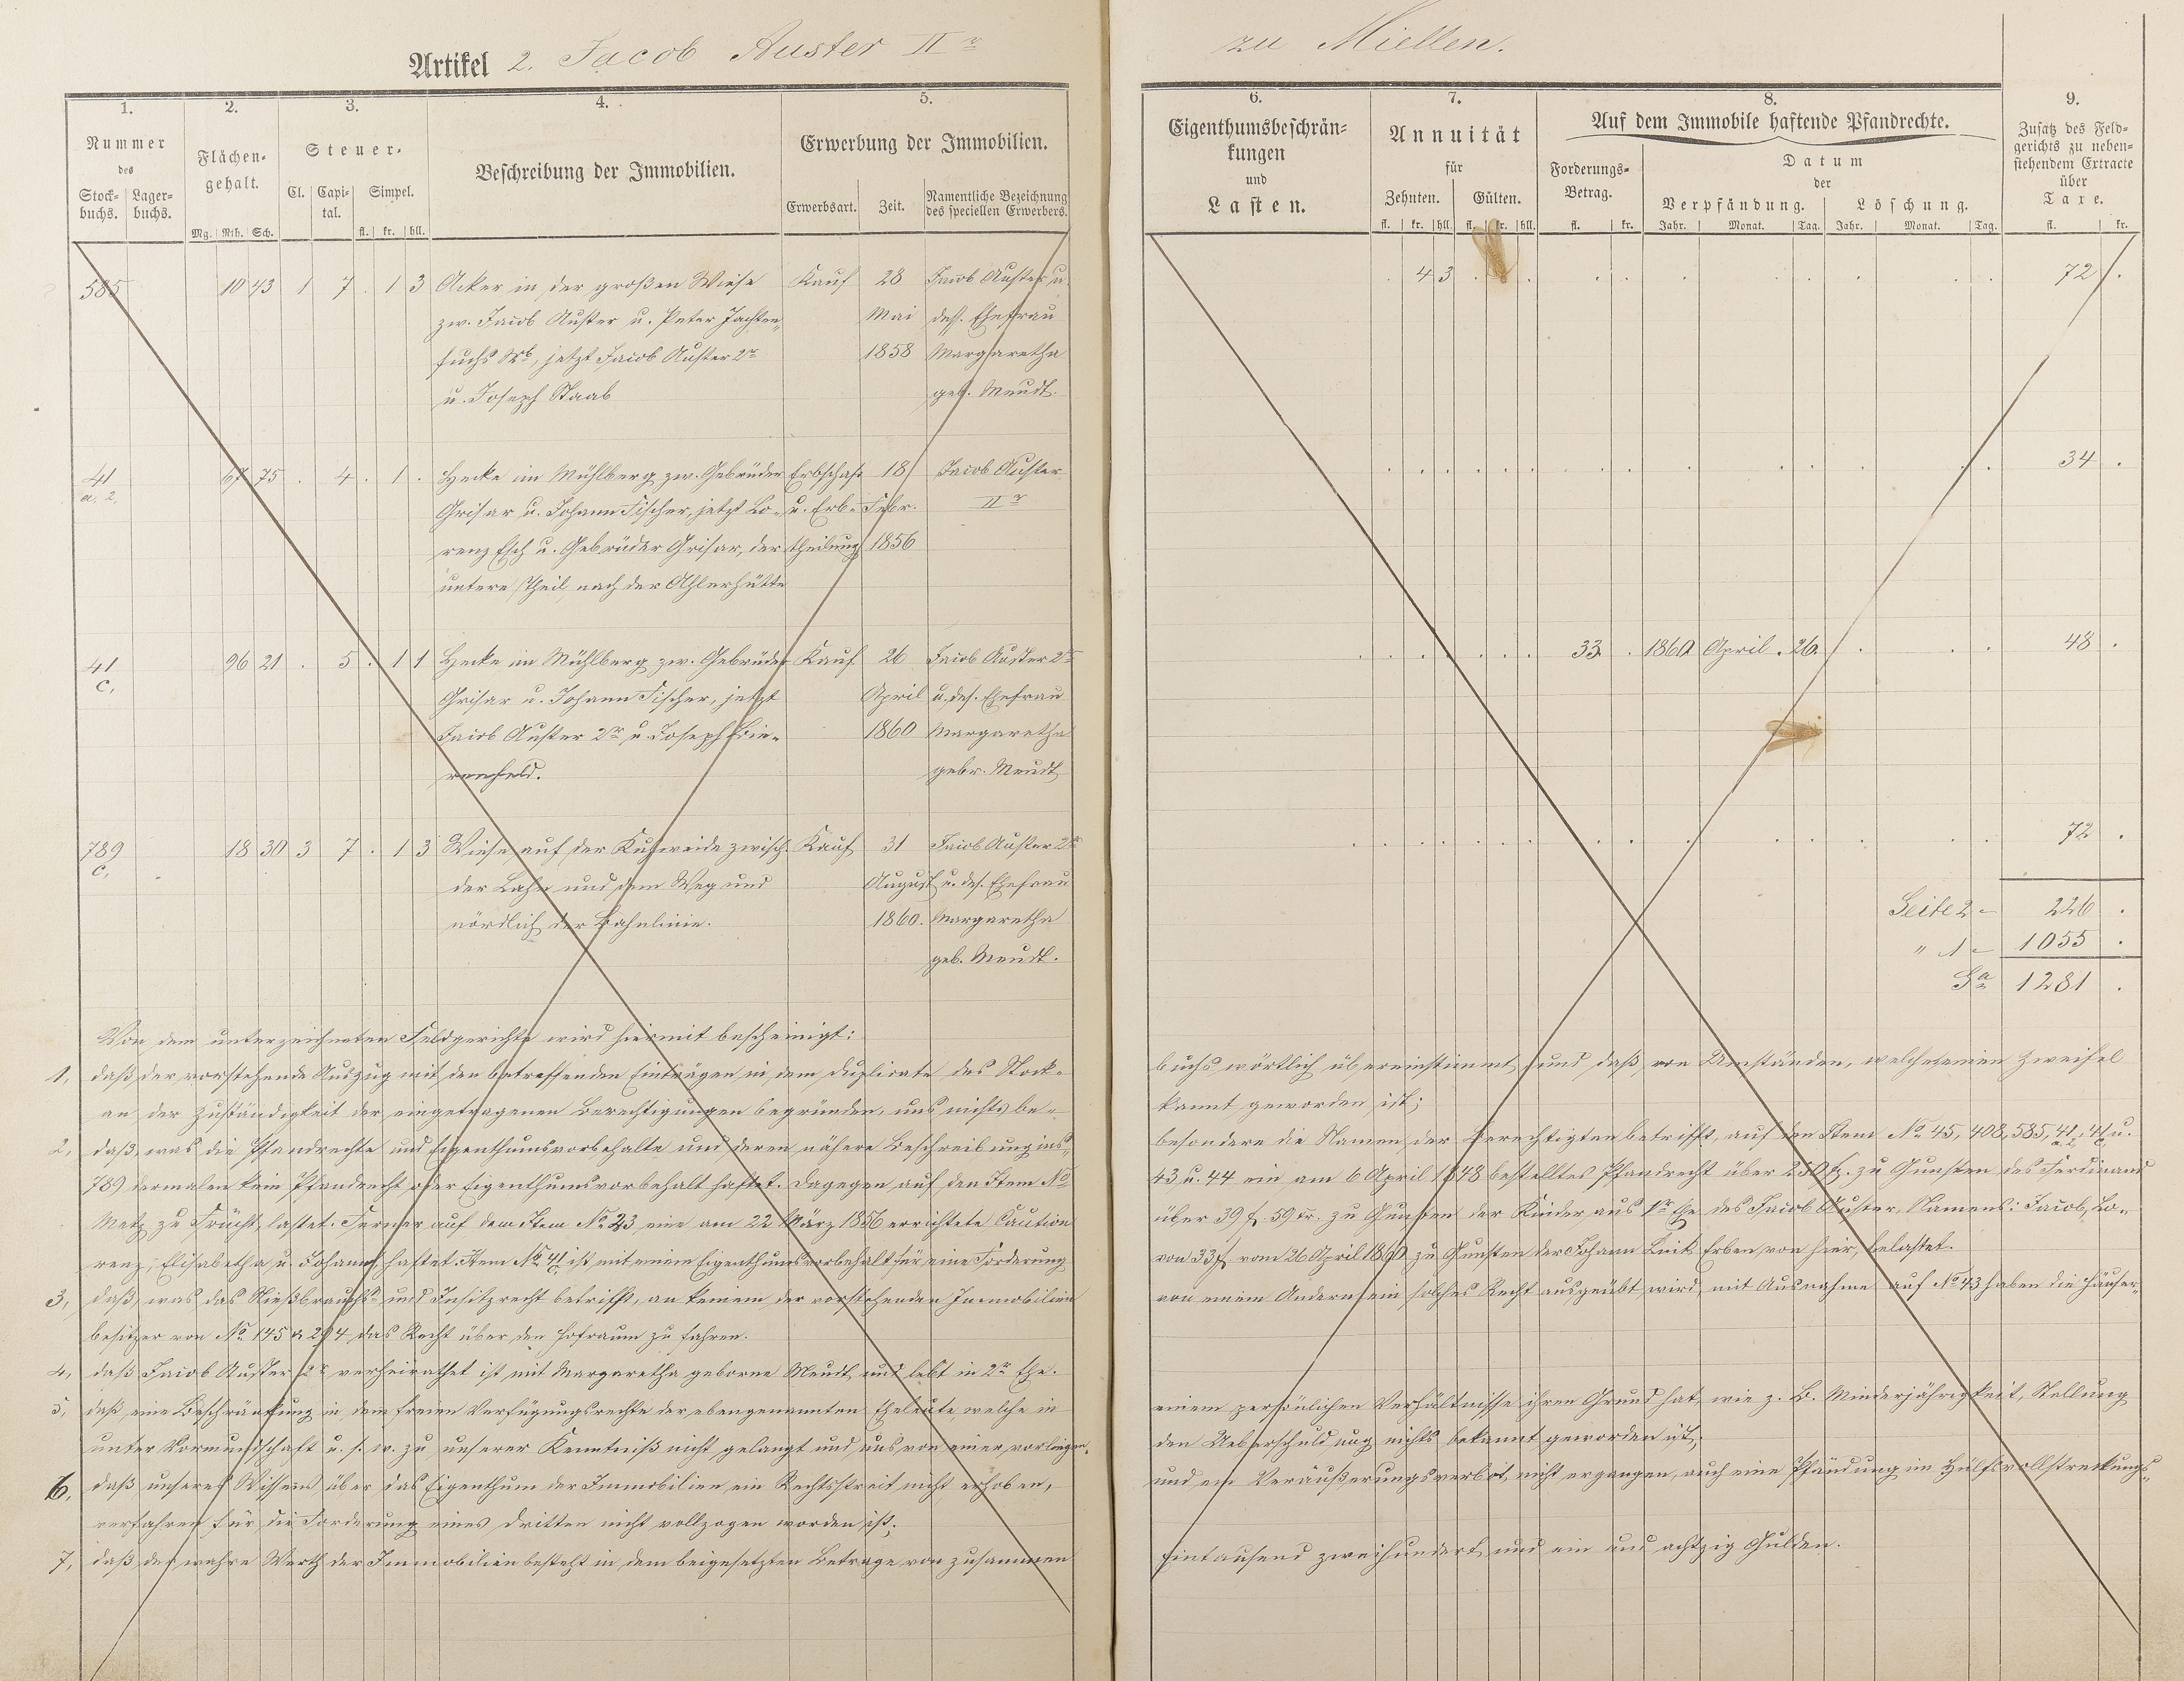 Artikel 2. Jacob Auster IIr zu Miellen.
1. 2. 3. 4. 5. 6. 7. 8. 9.
Nummer des
Stock-buchs. Lager-buchs.
Flächen-gehalt.
Mg. Rth. Sch.
Steuer-
Cl. Capi-tal. Simpel.
fl. kr. hll.
Beschreibung der Immobilien.
Erwerbung der Immobilien.
Erwerbsart. Zeit. Namentliche Bezeichnung des speciellen Erwerbers.
Eigenthumsbeschrän-
kungen
und
Lasten.
Annuität
für
Zehnten. Gülten.
fl. kr. hll. fl. kr. hll.
Auf dem Immobile haftende Pfandrechte.
Forderungs-
Betrag.
fl. kr.
Datum
der
Verpfändung. Löschung.
Jahr. Monat. Tag. Jahr. Monat. Tag.
Zusatz des Feld-
gerichts zu neben-
stehendem Extracte
über
Taxe.
fl. kr.
585 10 43 1 7 . 1 3 Acker in der großen Wiese Kauf 28 Jacob Auster u. . 4 3 72 .
zw. Jacob Auster u. Peter Jachten- Mai dess. Ehefrau
fuchs Wb, jetzt Jacob Auster 2r 1858 Margaretha
u. Joseph Staab geb. Meudt.
41 67 75 . 4 . 1 . Hecke im Mühlberg zw. Gebrüder Erbschaft 18 Jacob Auster 34 .
a. 2. Grisar u. Johann Fischer, jetzt Lo- u. Erb- Febr. IIr
renz Esch u. Gebrüder Grisar, der theilung 1856
untere Theil nach der Ahlerhütte
41 96 21 . 5 . 1 1 Hecke im Mühlberg zw. Gebrüder Kauf 26 Jacob Auster 2r 33 . 1860 April . 26. 48 .
c. Grisar u. Johann Fischer, jetzt April u. des. Ehefrau
Jacob Auster 2r u. Joseph Bie- 1860 Margaretha
renfeld. gebr. Meudt
789 18 30 3 7 . 1 3 Wiese auf der Kuhweide zwisch. Kauf 31 Jacob Auster 2r 72 .
c. der Lahn und dem Weg und August u. des. Ehefrau
nördlich der Bahnlinie. 1860. Margaretha
geb. Meudt.
Seite 2 - 226 .
" 1 - 1055 .
Sa 1281 .
Von dem unterzeichneten Feldgerichte wird hiermit bescheinigt:
1, daß der vorstehende Auszug mit den betreffenden Einträgen in dem Duplicate des Stock- buchs wörtlich übereinstimmt und daß von Umständen, welche einen Zweifel
an der Zuständigkeit der eingetragenen Berechtigungen begründen, uns nichts be- kannt geworden ist;
2, daß, was die Pfandrechte und Eigenthumsvorbehalte und deren nähere Beschreibung ins- besondere die Namen der Berechtigten betrifft, auf den Item No 45, 408, 585, 41 a. 2, 41 c u.
789 dermalen kein Pfandrecht oder Eigenthumsvorbehalt haftet. Dagegen auf den Item No 43 u. 44 ein am 6 April 1848 bestelltes Pfandrecht über 250 f. zu Gunsten des Ferdinand
Metz zu Frücht lastet. Ferner auf dem Item No 23 eine am 22 März 1856 errichtete Caution über 39 f. 59 kr. zu Gunsten der Kinder aus 1r Ehe des Jacob Auster, Namens: Jacob, Lo-
renz, Elisabetha u. Johann haftet. Item No 41 c ist mit einem Eigenthumsvorbehalt für eine Forderung von 33 f. vom 26 April 1860 zu Gunsten der Johann Erben von hier, belastet.
3, daß, was das Nießbrauchs- und Insitzrecht betrifft, an keinem der vorstehenden Immobilien von einem Andern ein solches Recht ausgeübt wird, mit Ausnahme auf No 43 haben die Häuser-
besitzer von No 145 & 294 das Recht über den Hofraum zu fahren.
4, daß Jacob Auster 2r verheirathet ist mit Margaretha geborne Meudt und lebt in 2r Ehe.
5, daß eine Beschränkung in dem freien Verfügungsrechte der ebengenannten Eheleute welche in einem persönlichen Verhältnisse ihren Grund hat, wie z. B. Minderjährigkeit, Stellung
unter Vormundschaft u. s. w. zu unserer Kenntniß nicht gelangt und uns von einer vorliegen- den Ueberschuldung nichts bekannt geworden ist;
6, daß unseres Wissens über das Eigenthum der Immobilien ein Rechtsstreit nicht erhoben, und ein Veräußerungsverbot nicht ergangen, auch eine Pfändung im Hülfsvollstreckungs-
verfahren für die Forderung eines Dritten nicht vollzogen worden ist;
7, daß der wahre Werth der Immobilien besteht in dem beigesetzten Betrage von zusammen Eintausend zweihundert und ein und achtzig Gulden.